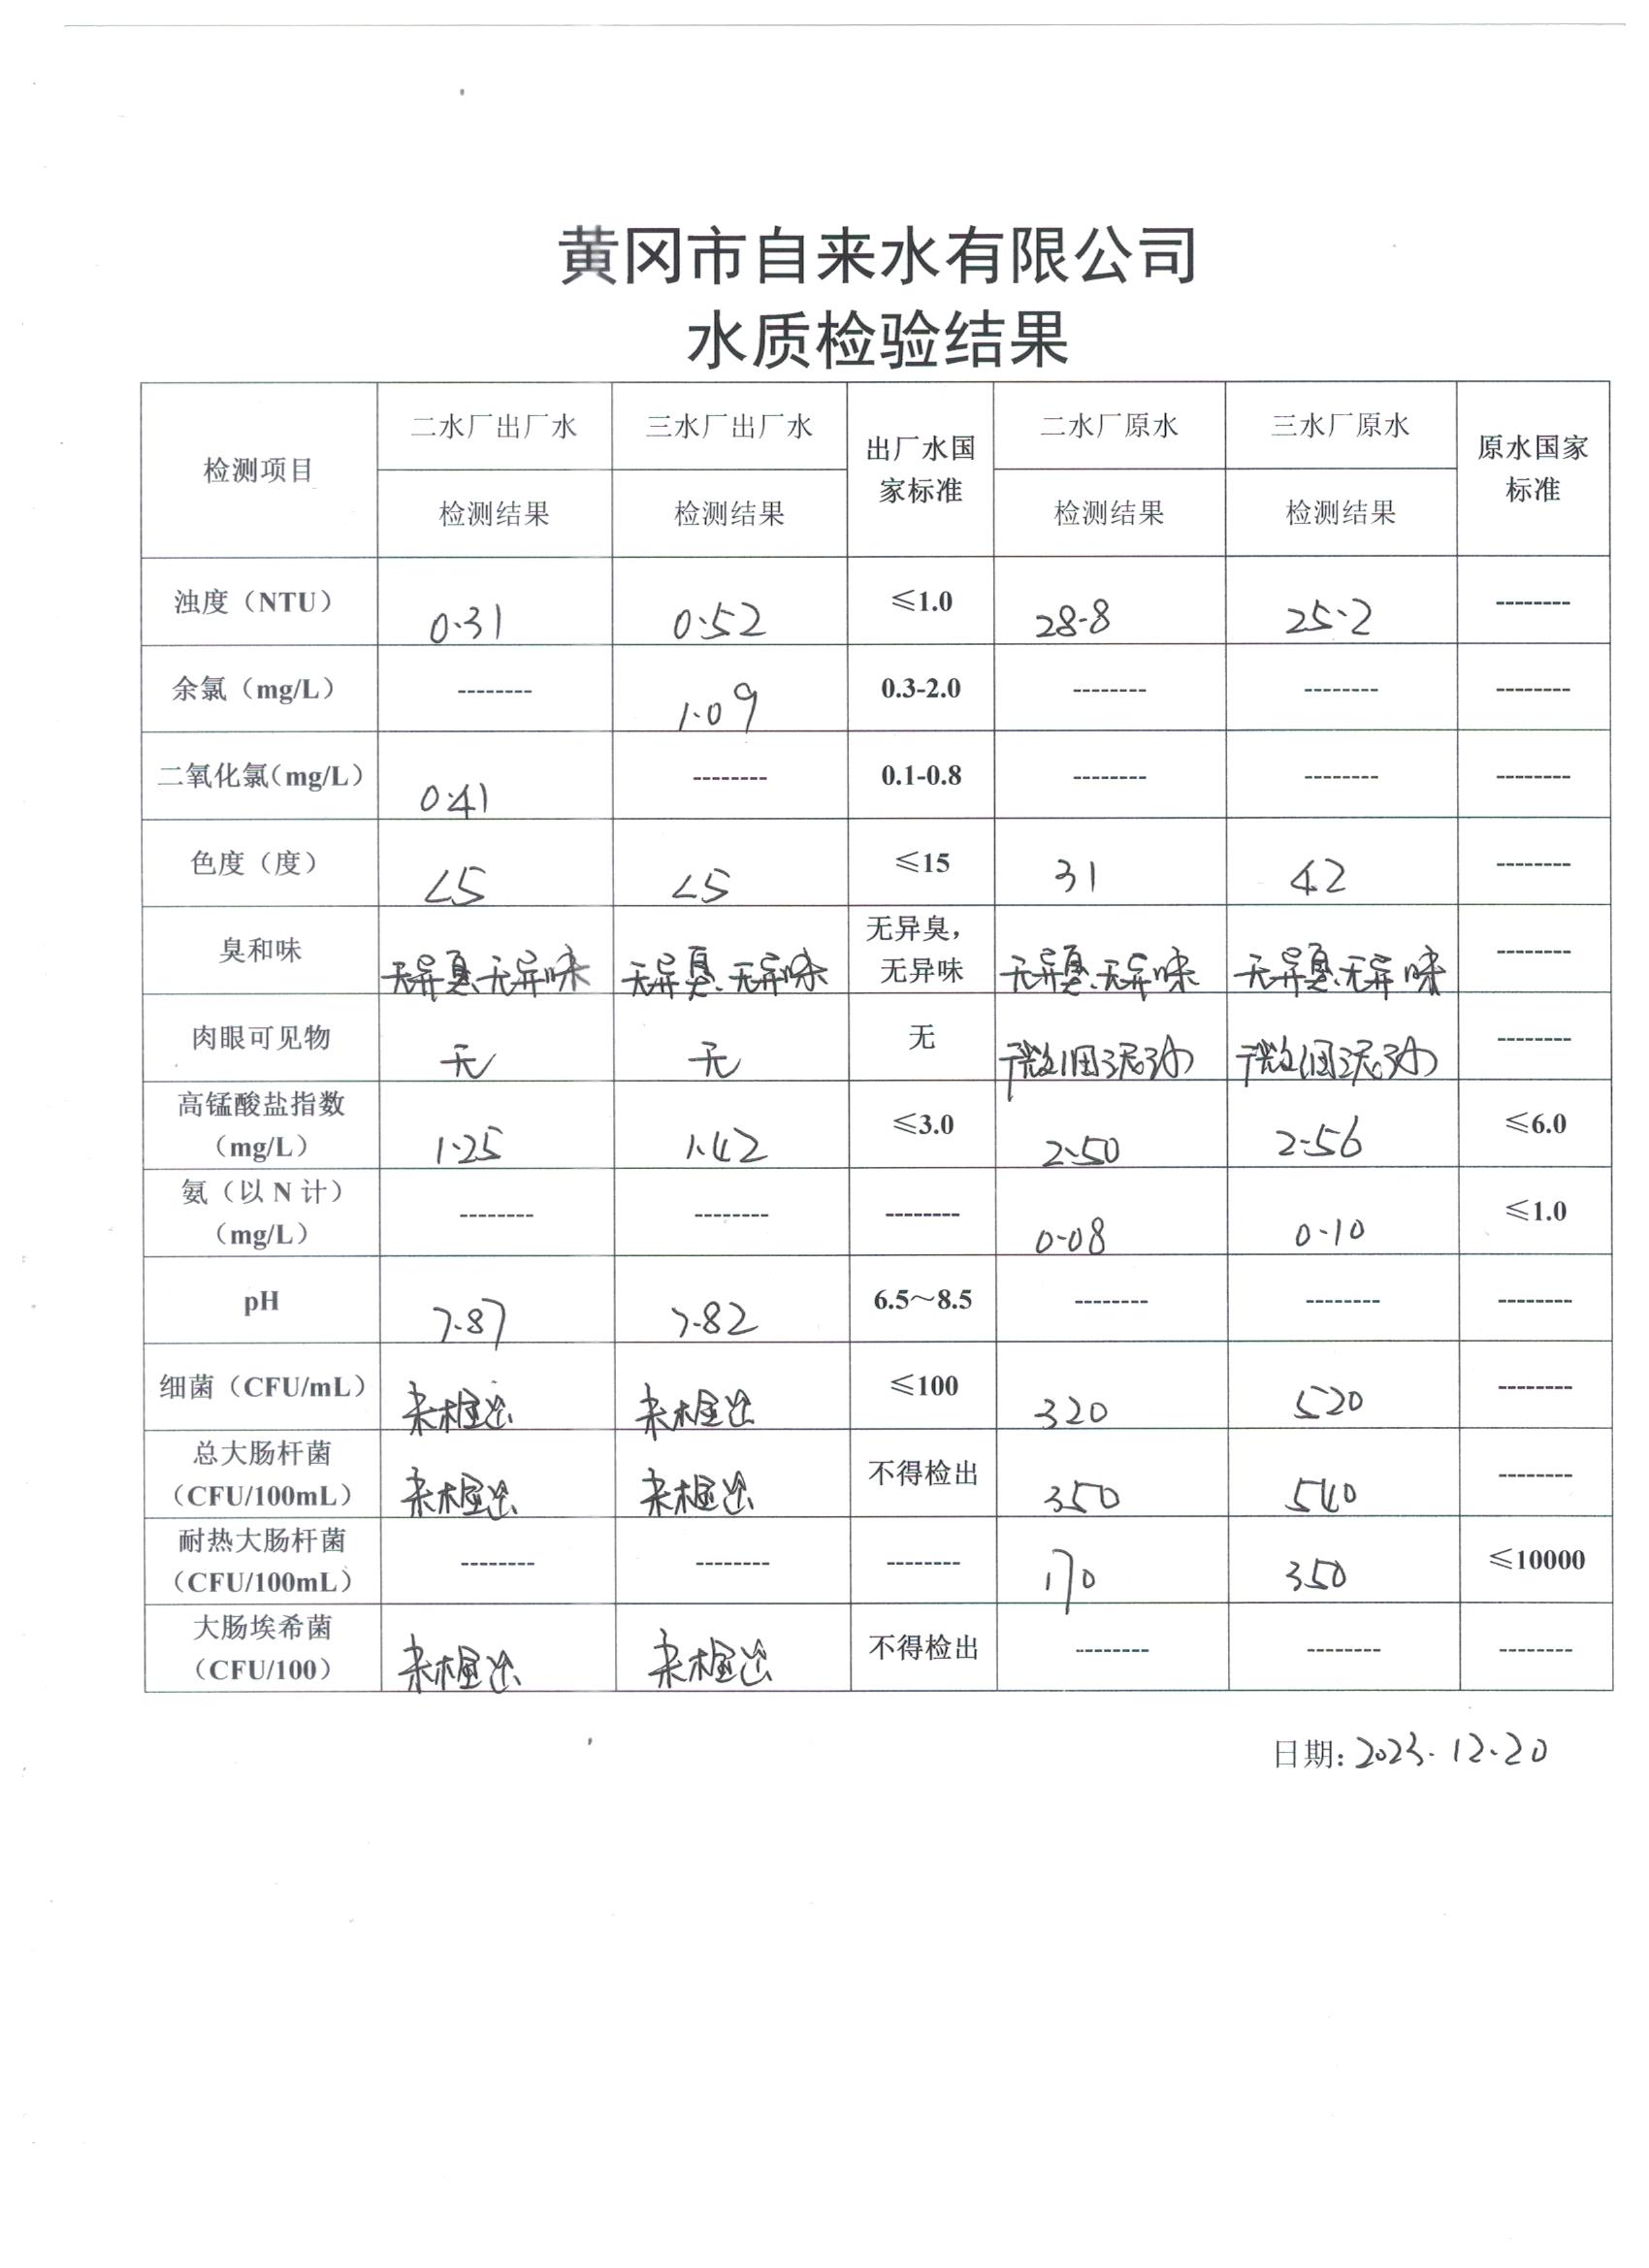 黄冈市自来水有限公司
水质检验结果
检测项目 二水厂出厂水 三水厂出厂水 出厂水国家标准 二水厂原水 三水厂原水 原水国家标准
检测结果 检测结果 检测结果 检测结果
浊度（NTU） 0.31 0.52 ≤1.0 28.8 25.2 --------
余氯（mg/L） -------- 1.09 0.3-2.0 -------- -------- --------
二氧化氯（mg/L） 0.41 -------- 0.1-0.8 -------- -------- --------
色度（度） <5 <5 ≤15 31 42 --------
臭和味 无异臭、无异味 无异臭、无异味 无异臭，无异味 无异臭、无异味 无异臭、无异味 --------
肉眼可见物 无 无 无 微细泥沙 微细泥沙 --------
高锰酸盐指数（mg/L） 1.25 1.42 ≤3.0 2.50 2.56 ≤6.0
氨（以 N 计）（mg/L） -------- -------- -------- 0.08 0.10 ≤1.0
pH 7.87 7.82 6.5～8.5 -------- -------- --------
细菌（CFU/mL） 未检出 未检出 ≤100 320 520 --------
总大肠杆菌（CFU/100mL） 未检出 未检出 不得检出 350 540 --------
耐热大肠杆菌（CFU/100mL） -------- -------- -------- 170 350 ≤10000
大肠埃希菌（CFU/100） 未检出 未检出 不得检出 -------- -------- --------
日期: 2023.12.20